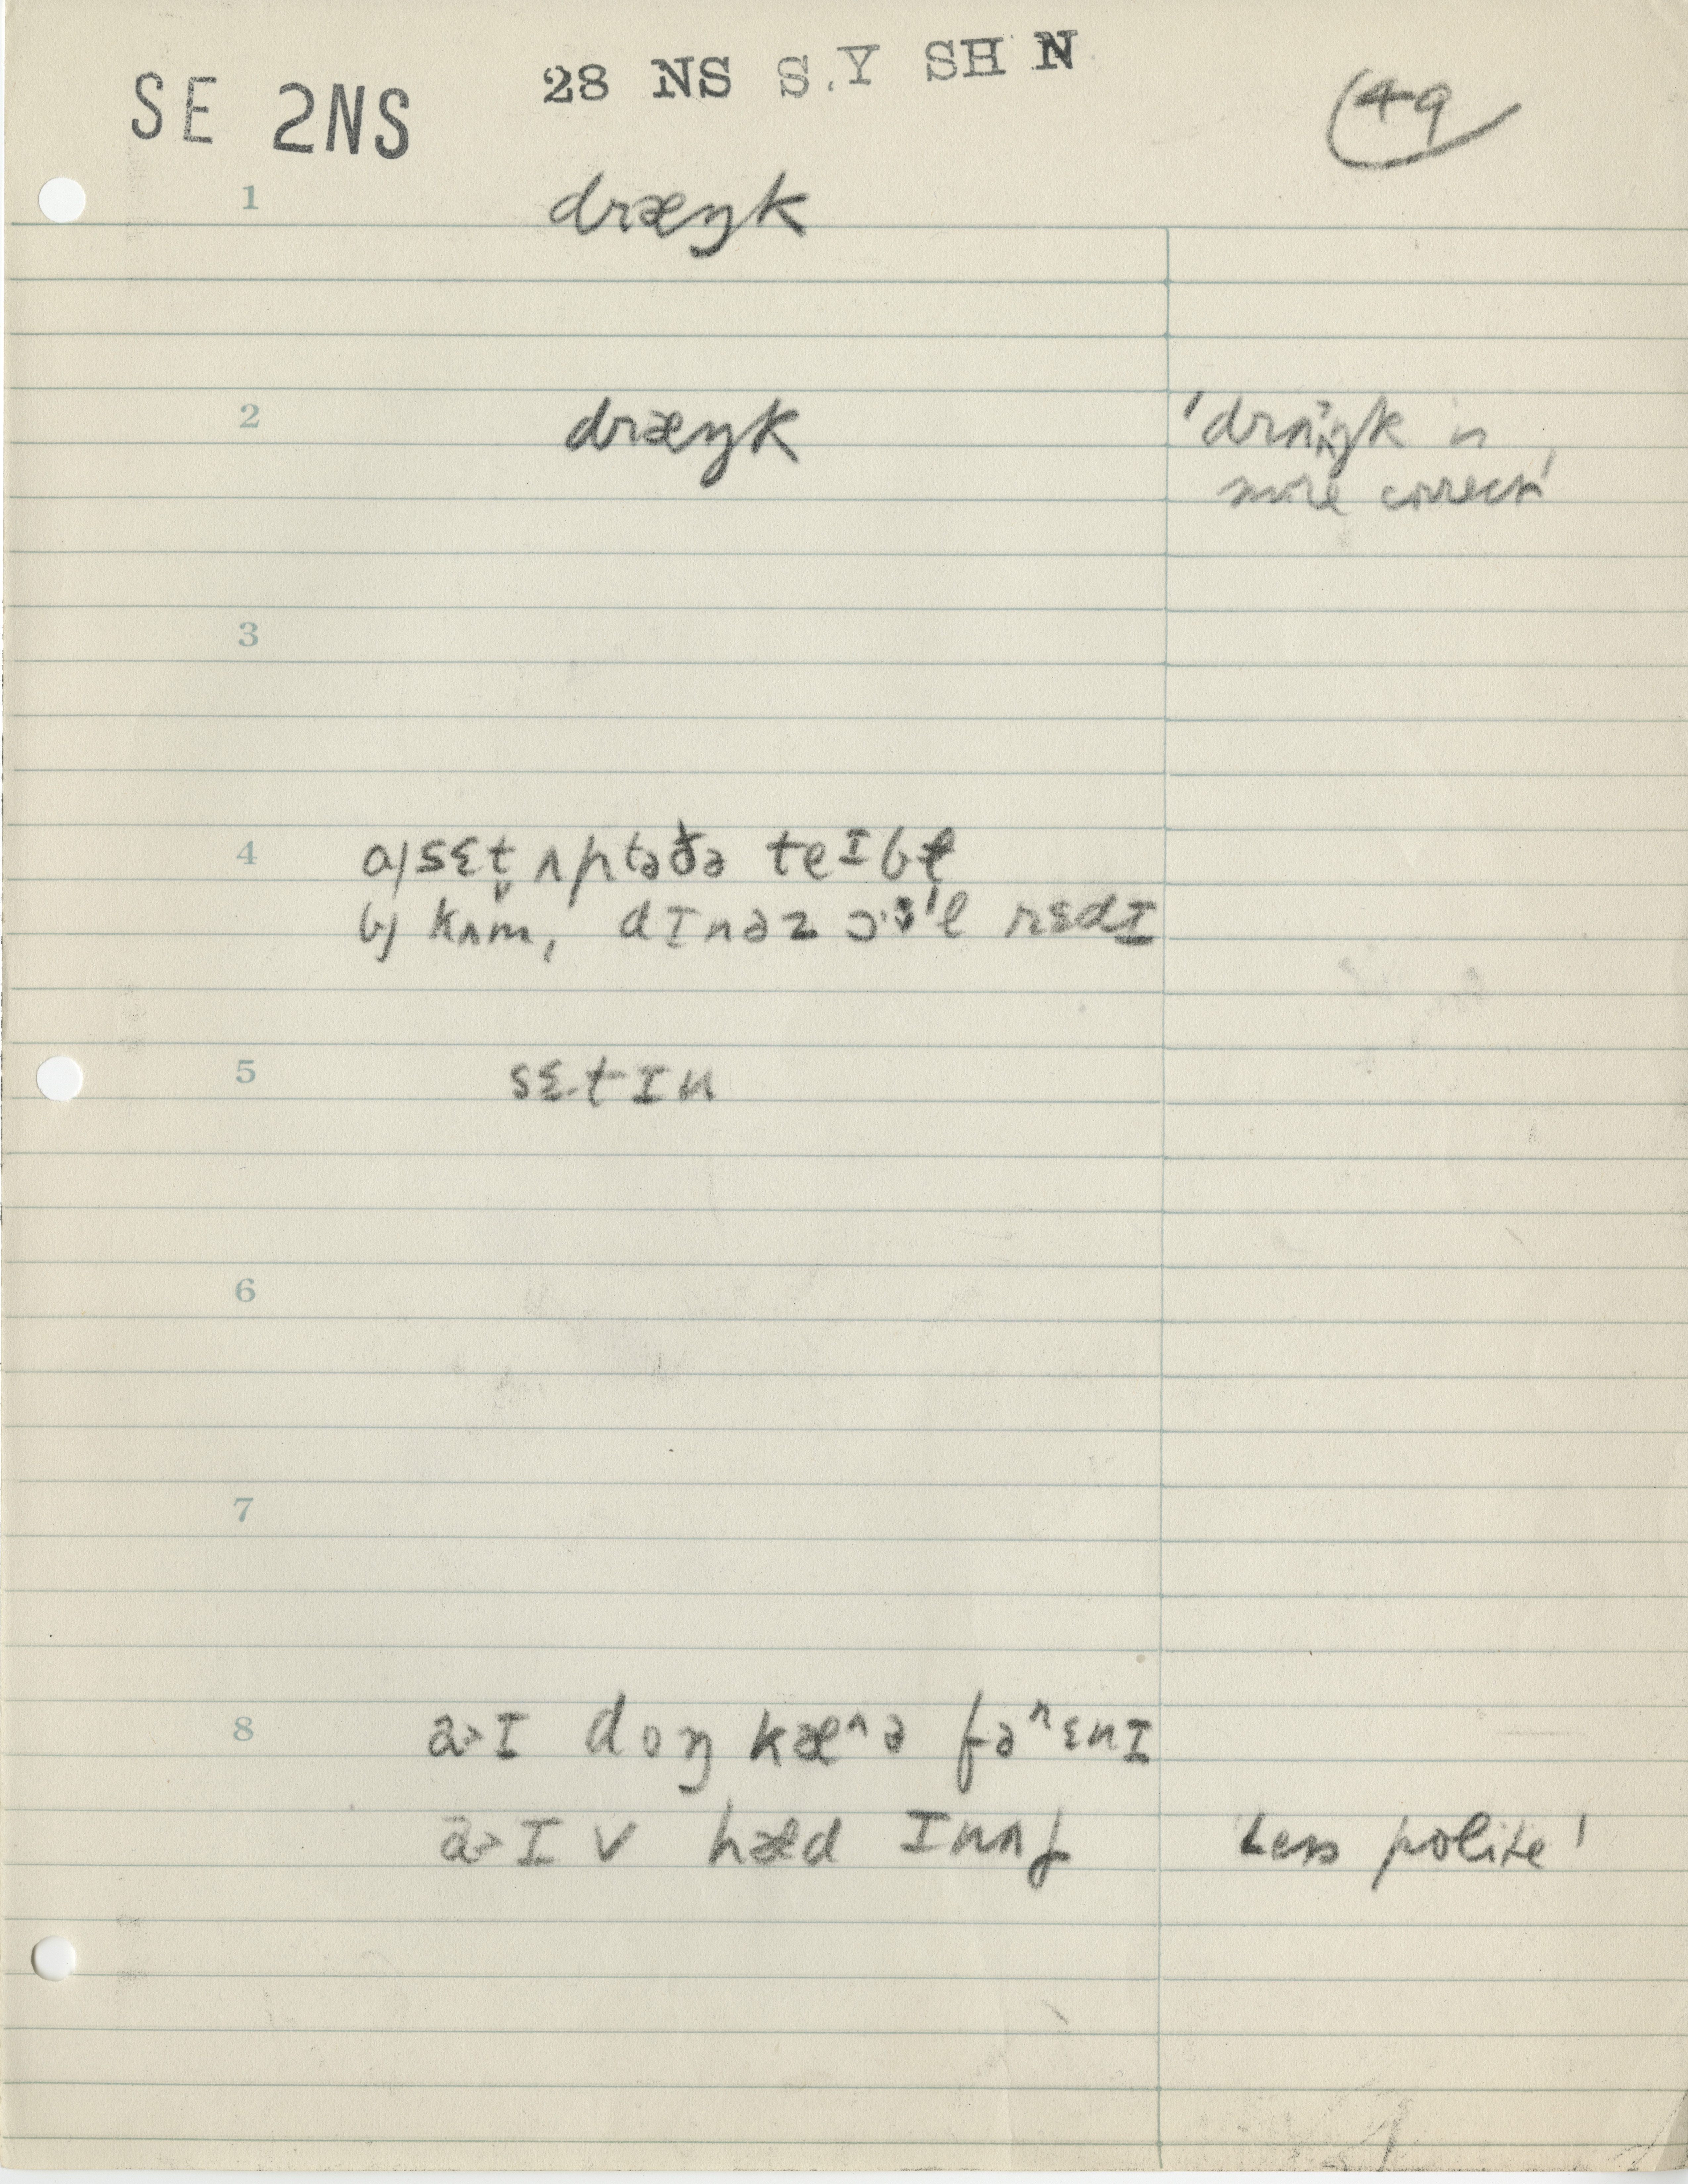 SE 2NS
28 NS S.Y SH N
49
1 dræŋk
2 dræŋk
'drʌŋk is
more correct'
3
4 a) sɛt̬ ʌp tə ðə teɪbɫ
b) kʌm, dɪnəz ɔːl rɛdɪ
5 sɛtɪn
6
7
8 a>ɪ doŋ kæʌə fəʌɛnɪ
a>ɪ v hæd ɪnʌf
'Less polite'